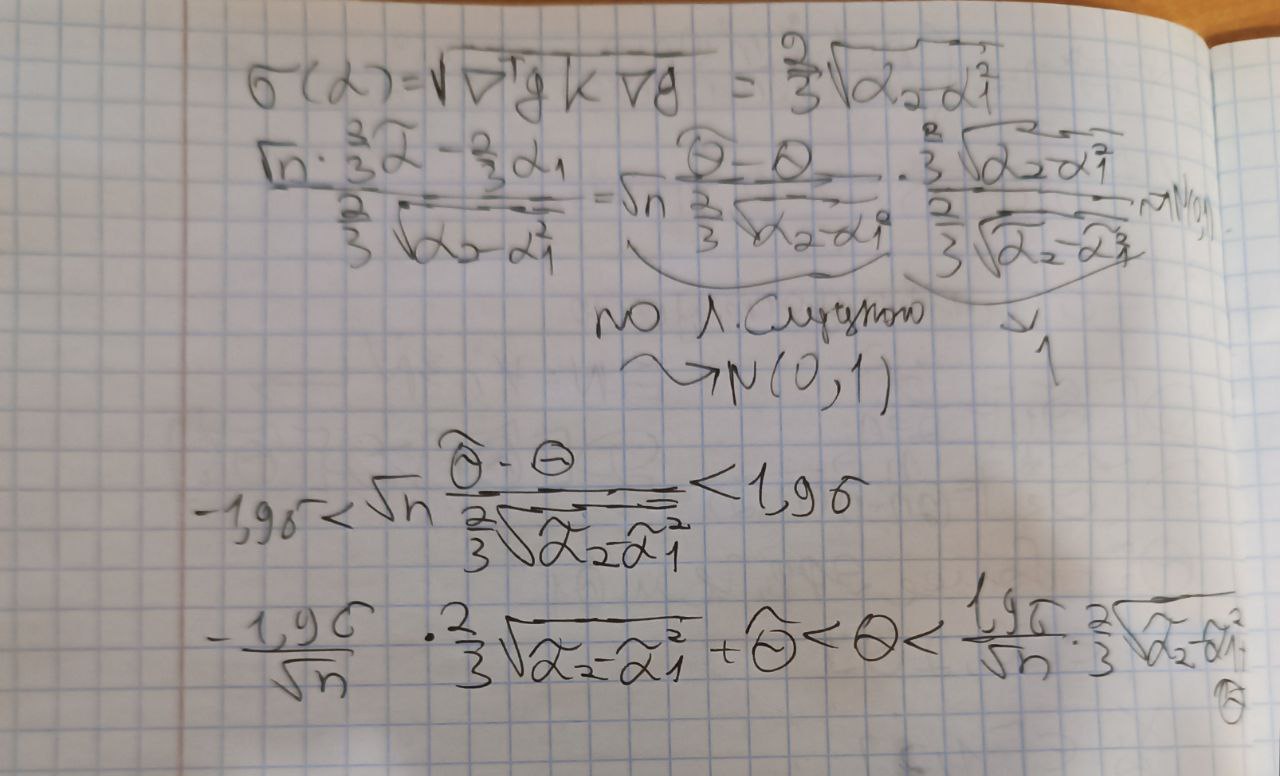 σ(α) = √(∇ᵀg K ∇g) = 2/3 √(α₂ - α₁²)
√n · (2/3 α̃ - 2/3 α₁) / (2/3 √(α₂ - α₁²)) = √n (θ̃ - θ) / (2/3 √(α₂ - α₁²)) · (2/3 √(α₂ - α₁²)) / (2/3 √(α̃₂ - α̃₁²)) ⇝ N(0,1)
по л. Слуцкого → 1
⇝ N(0,1)
-1,96 < √n (θ̃ - θ) / (2/3 √(α̃₂ - α̃₁²)) < 1,96
-1,96/√n · 2/3 √(α̃₂ - α̃₁²) + θ̃ < θ < 1,96/√n · 2/3 √(α̃₂ - α̃₁²) + θ̃